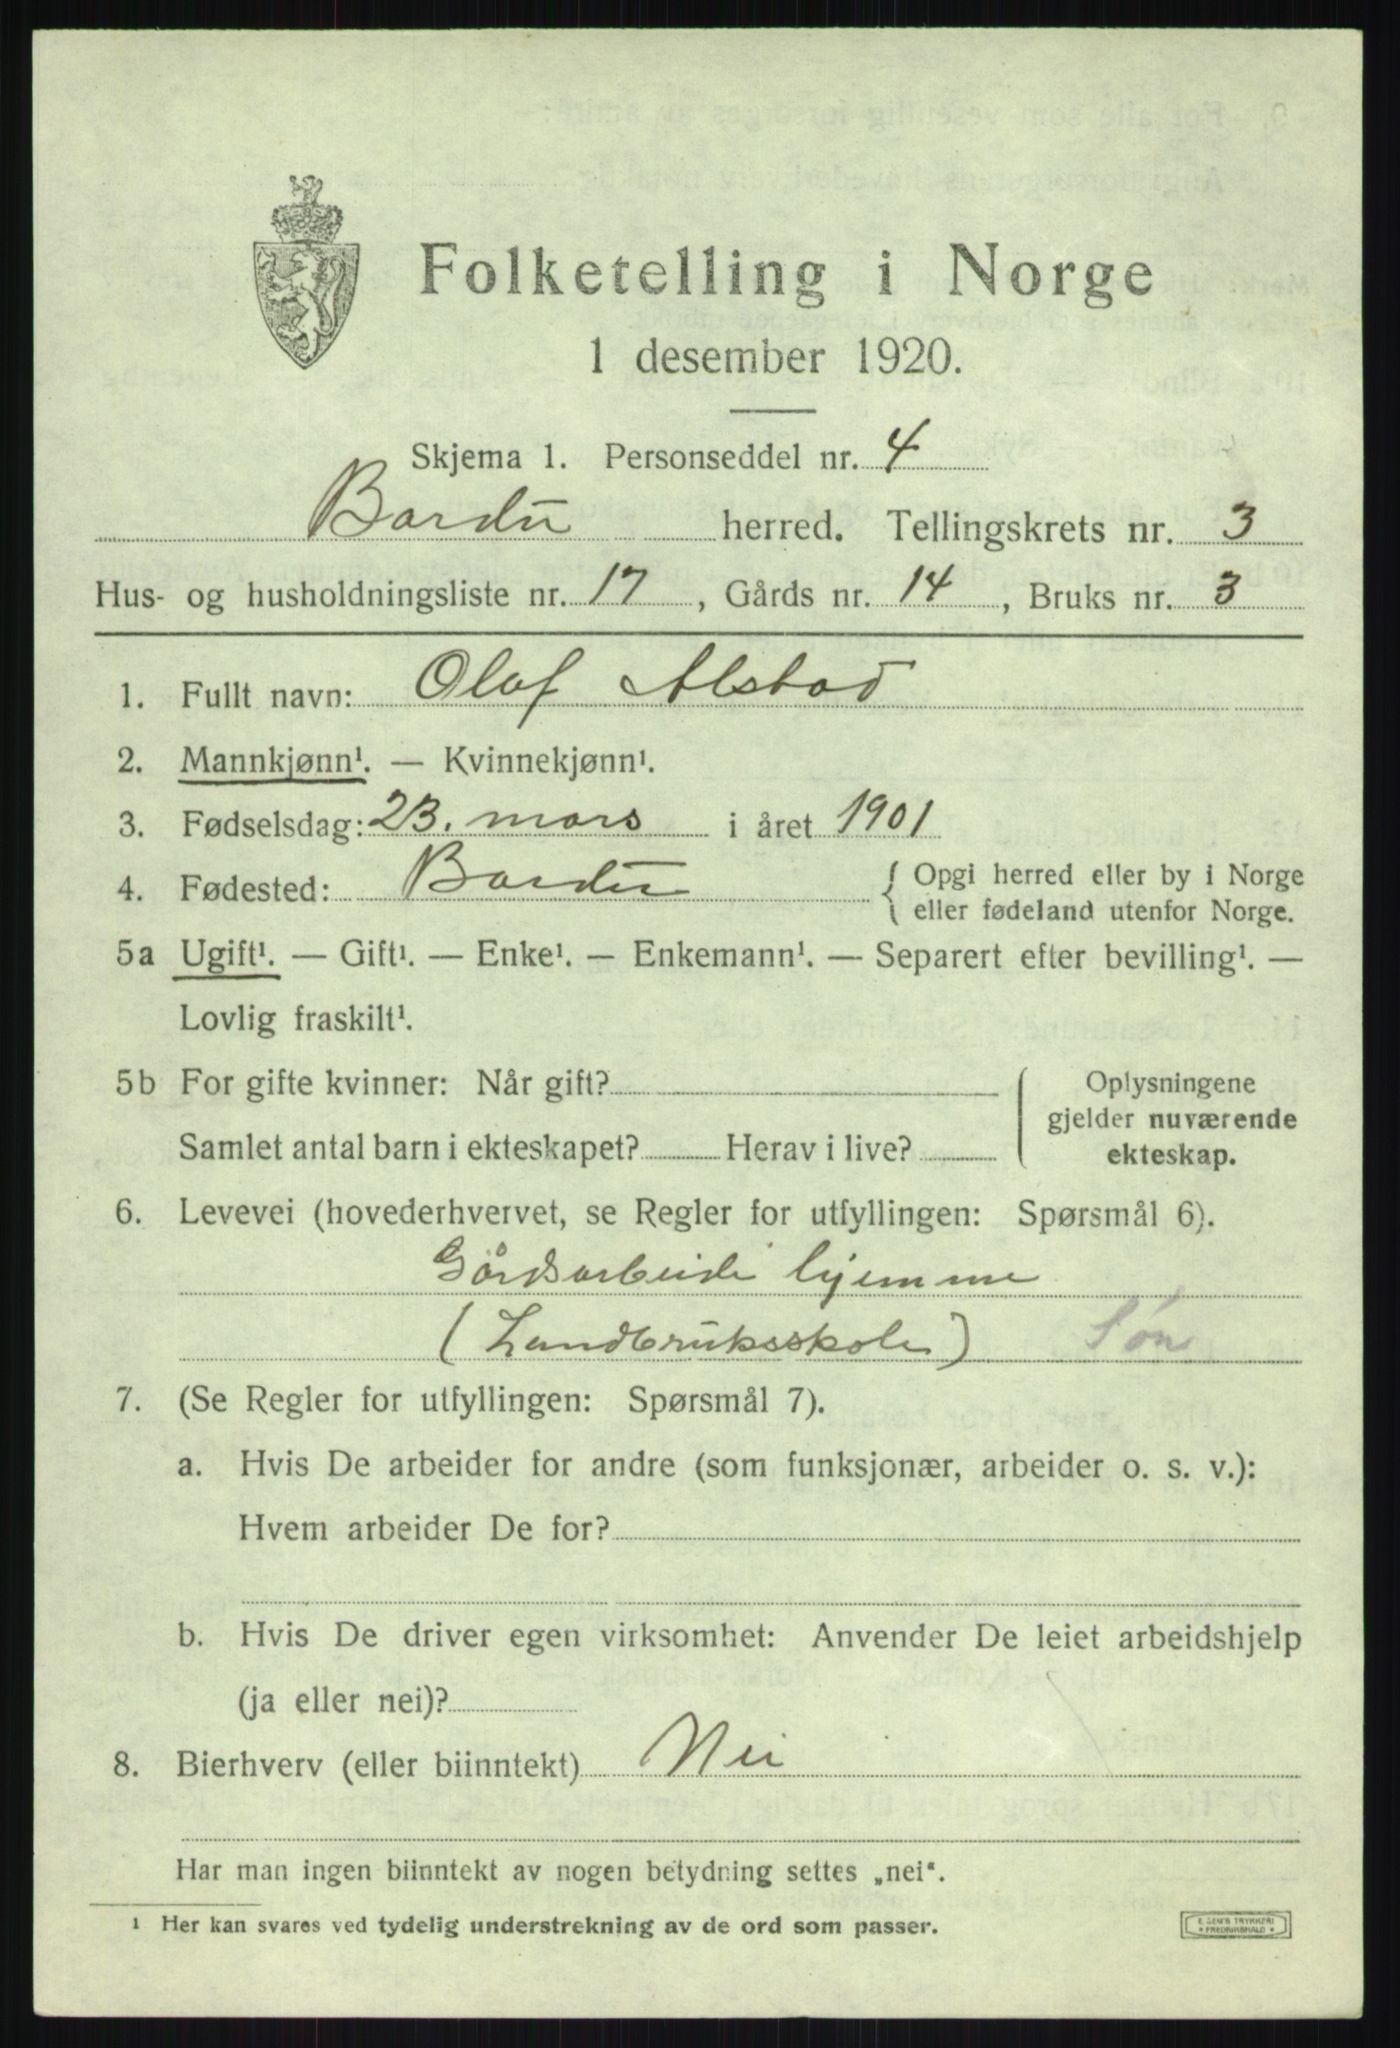 Folketelling i Norge
1 desember 1920.
Skjema 1. Personseddel nr. 4
Bardu herred. Tellingskrets nr. 3
Hus- og husholdningsliste nr. 17, Gårds nr. 14, Bruks nr. 3
1. Fullt navn: Olaf Alstad
2. Mannkjønn¹. — Kvinnekjønn¹.
3. Fødselsdag: 23. mars i året 1901
4. Fødested: Bardu { Opgi herred eller by i Norge
eller fødeland utenfor Norge.
5a Ugift¹. — Gift¹. — Enke¹. — Enkemann¹. — Separert efter bevilling¹. —
Lovlig fraskilt¹.
5b For gifte kvinner: Når gift?
Samlet antal barn i ekteskapet? Herav i live?
Oplysningene
gjelder nuværende
ekteskap.
6. Levevei (hovederhvervet, se Regler for utfyllingen: Spørsmål 6).
Gårdsarbeide hjemme
(Landbruksskole) Søn
7. (Se Regler for utfyllingen: Spørsmål 7).
a. Hvis De arbeider for andre (som funksjonær, arbeider o. s. v.):
Hvem arbeider De for?
b. Hvis De driver egen virksomhet: Anvender De leiet arbeidshjelp
(ja eller nei)?
8. Bierhverv (eller biinntekt) Nei
Har man ingen biinntekt av nogen betydning settes „nei“.
¹ Her kan svares ved tydelig understrekning av de ord som passer.
E. SEM'S TRYKKERI
FREDRIKSHALD